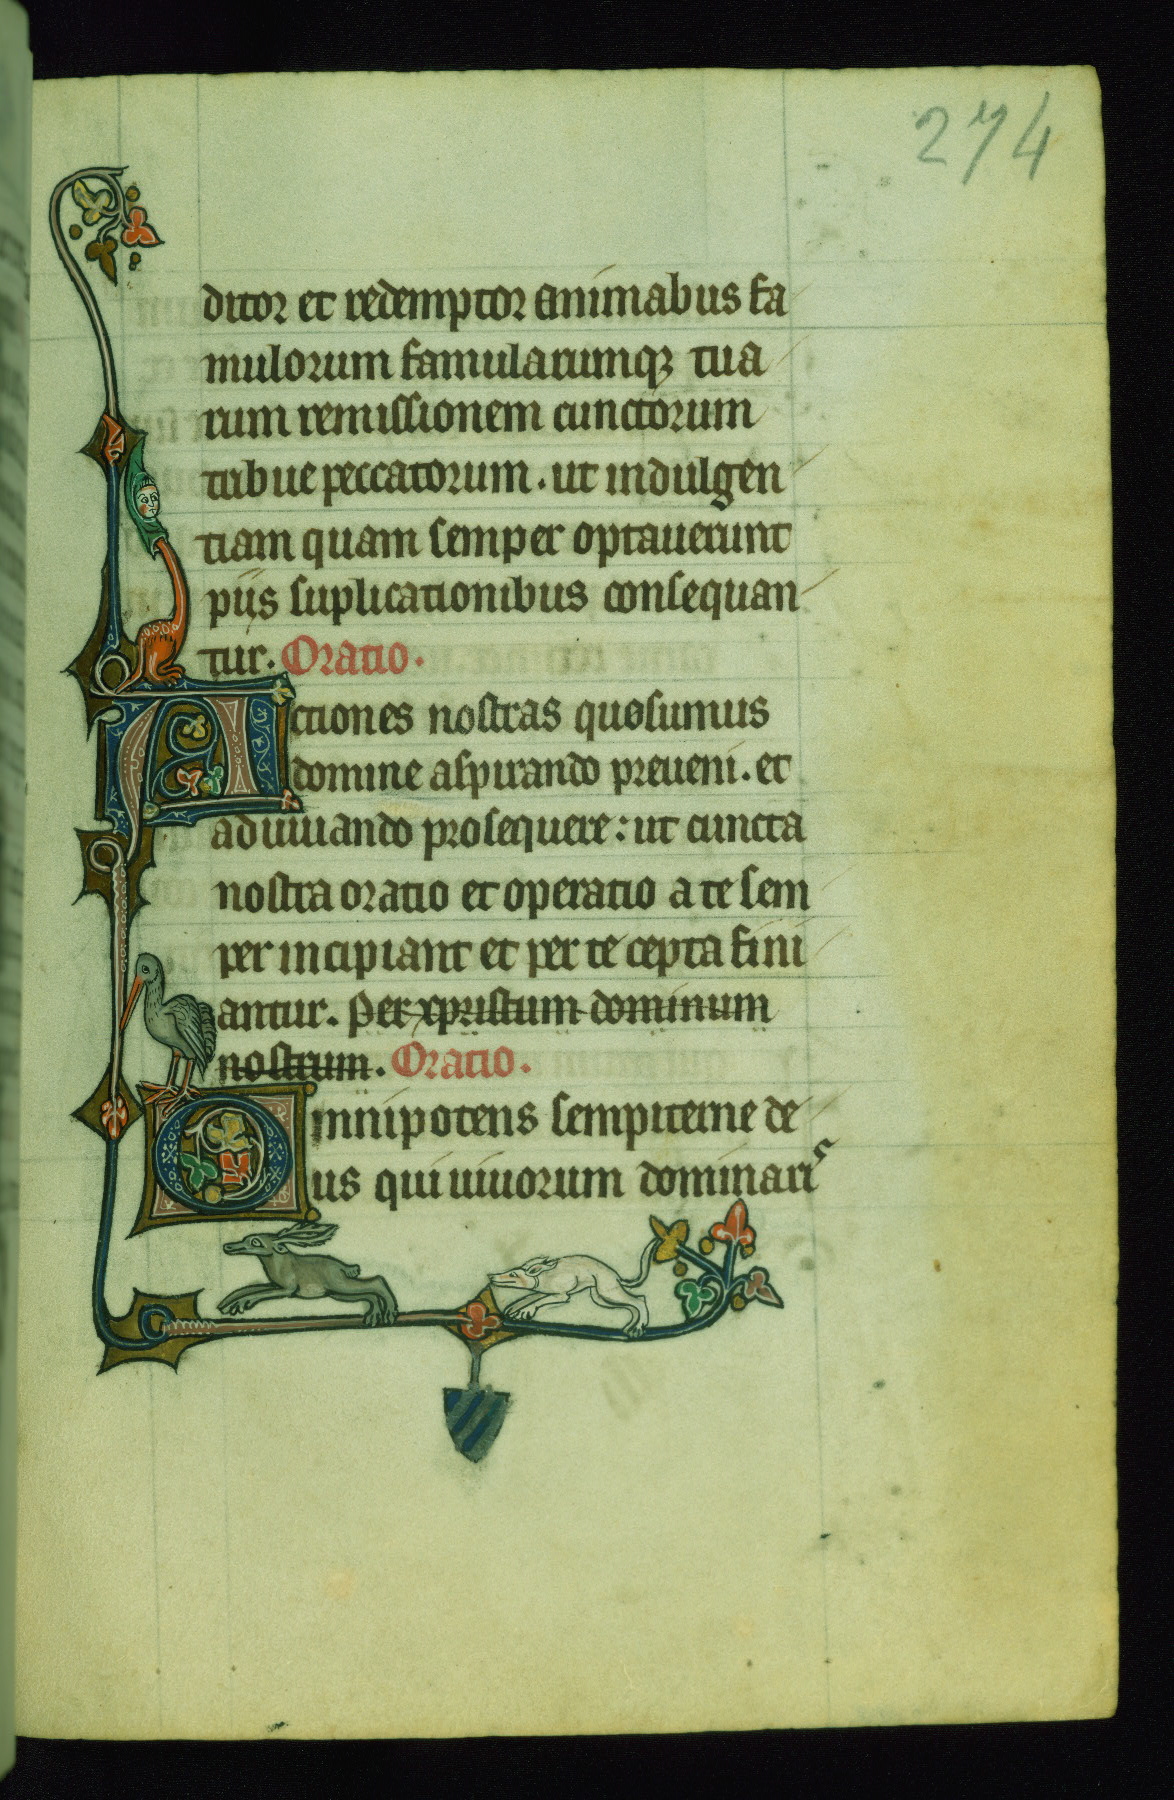 274
ditor et redemptor animabus fa
mulorum famularumqꝫ tua
rum remissionem cunctorum
tribue peccatorum. ut indulgen
tiam quam semper optauerunt
piis suplicationibus consequan
tur. Oratio.
Actiones nostras quesumus
domine aspirando preueni. et
adiuuando prosequere: ut cuncta
nostra oratio et operatio a te sem
per incipiant et per te cepta fini
antur. Per xpristum dominum
nostrum. Oratio.
Omnipotens sempiterne de
us qui uiuorum dominaris